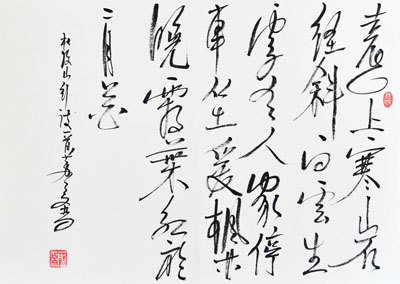 遠上寒山石
徑斜白雲生
處有人家停
車坐愛楓林
晚霜葉紅於
二月花
杜牧山行詩一首